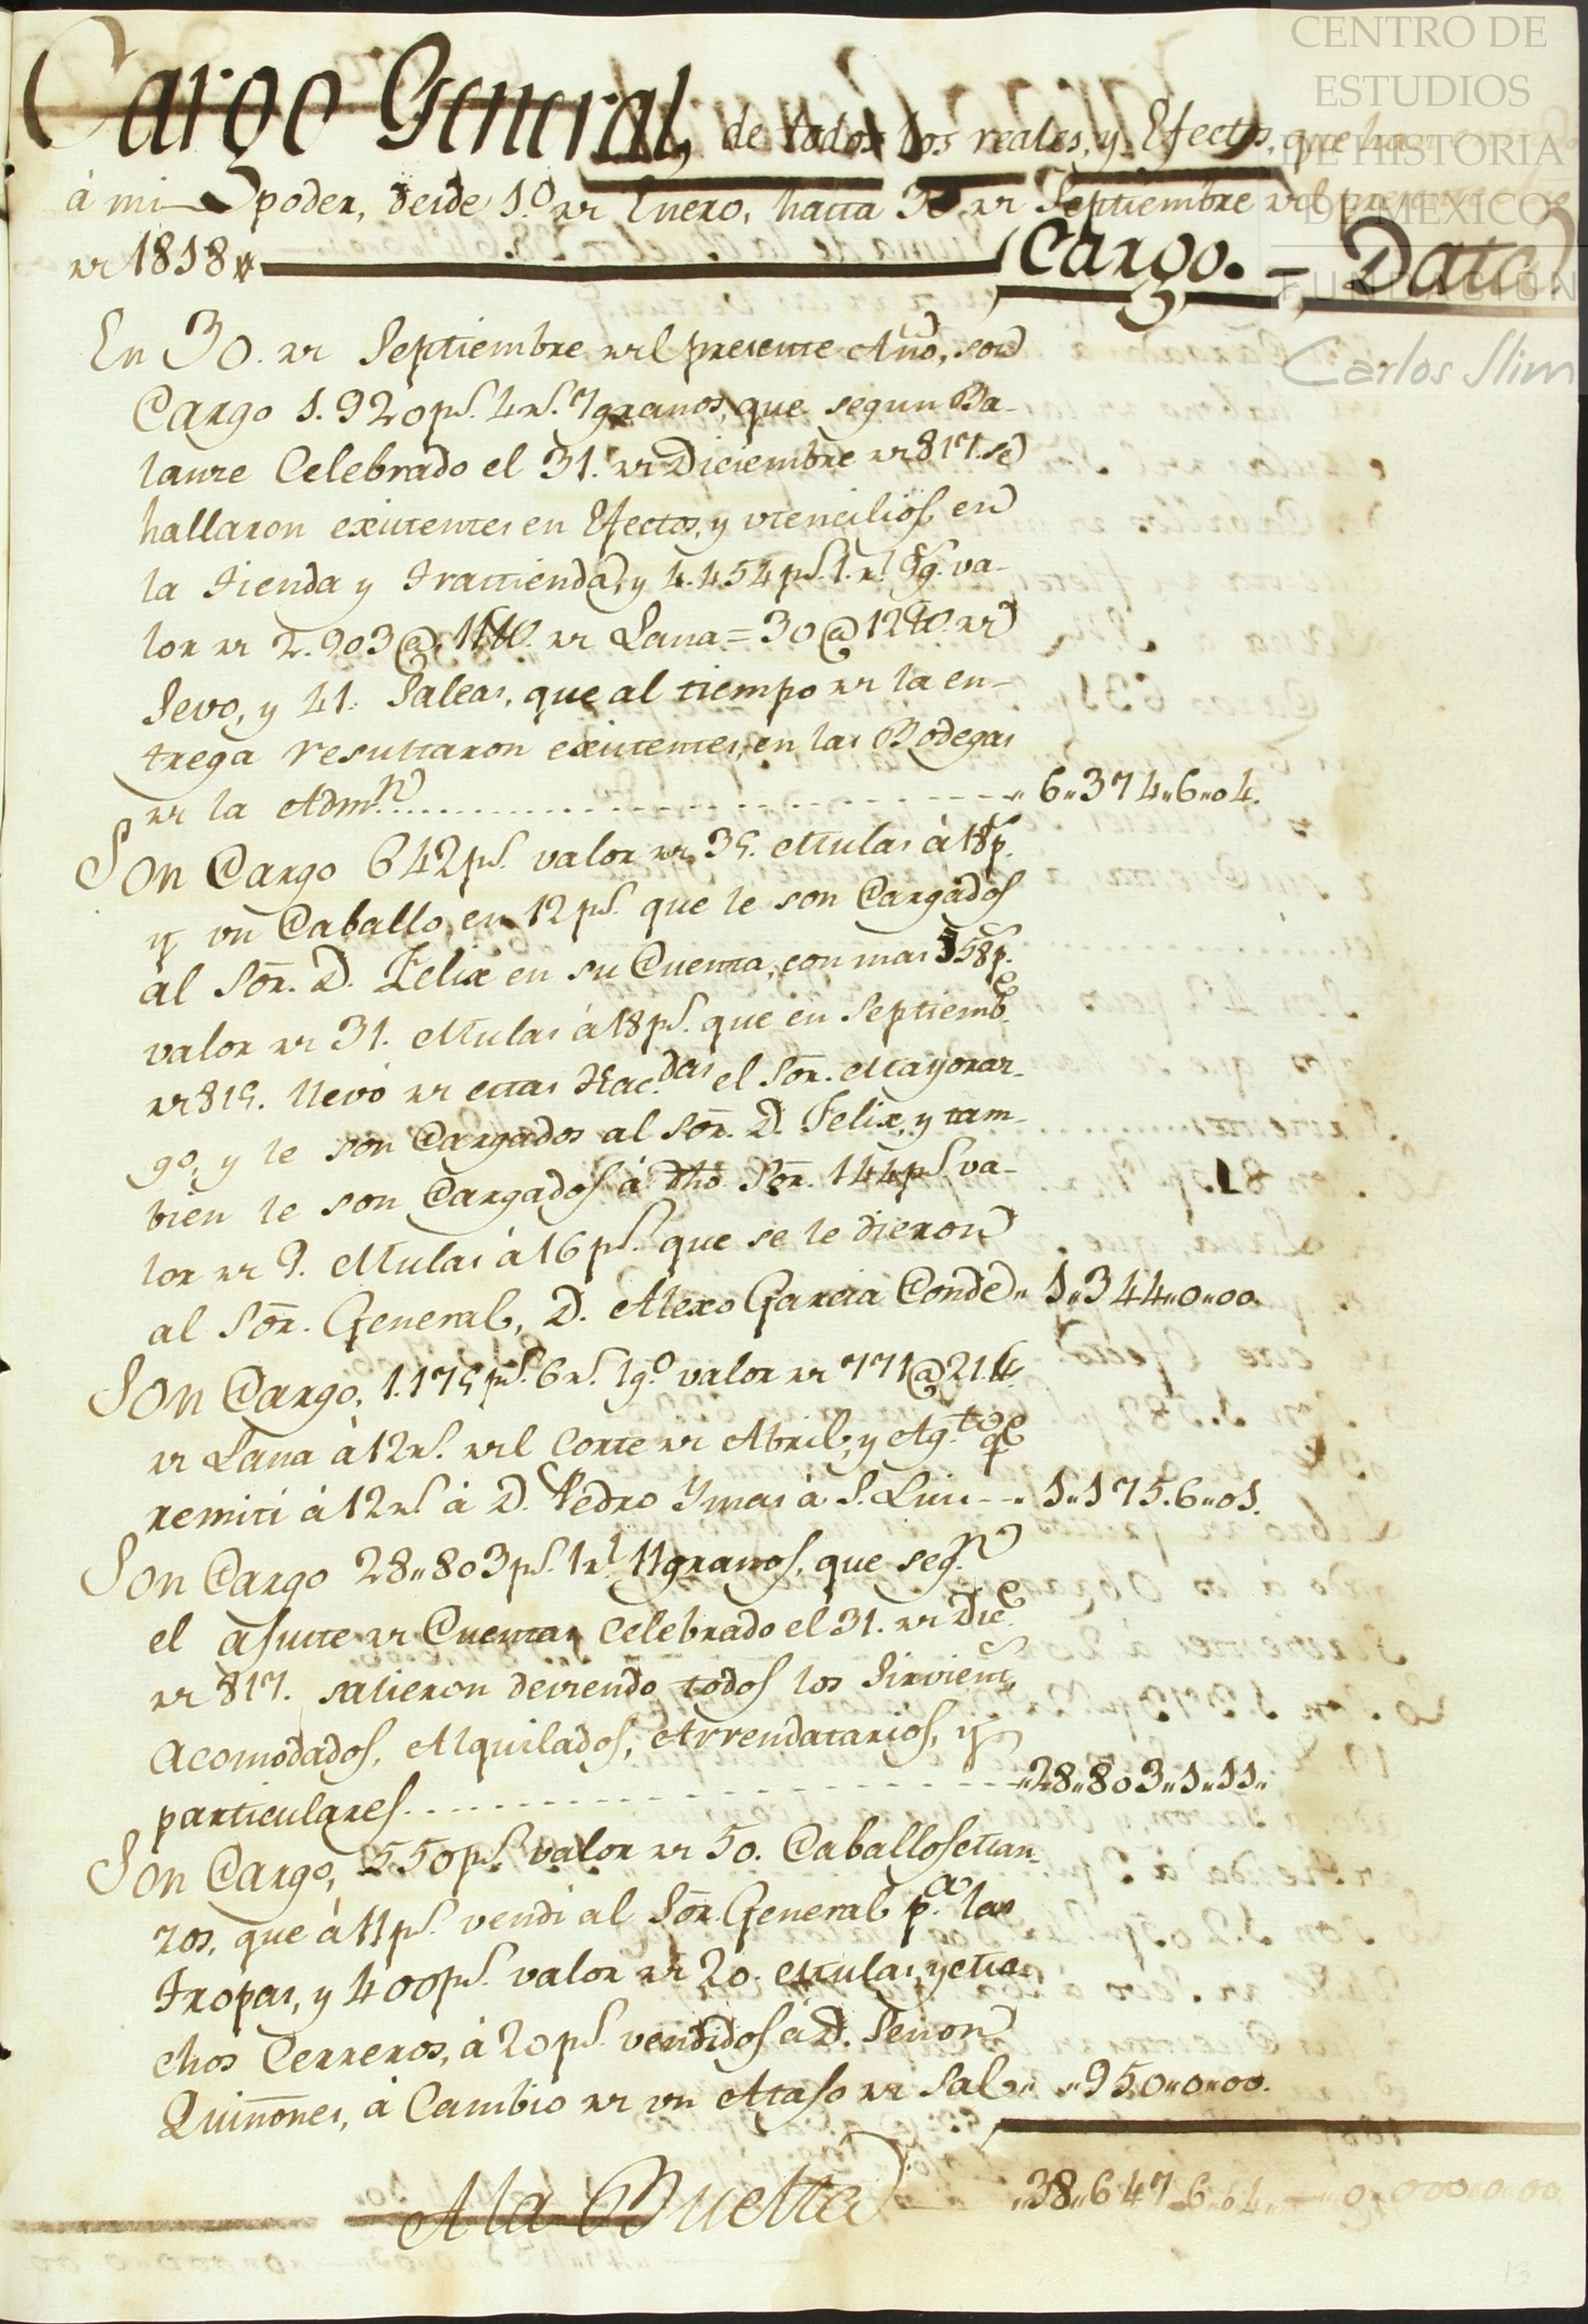 CENTRO DE
ESTUDIOS
DE HISTORIA
DE MÉXICO
FUNDACIÓN
Carlos Slim
Cargo General, de todos los reales, y Efectos, que han
á mi poder, desde 1.o de Enero, hasta 30 de Septiembre del presente
de 1818
Cargo. = Data
En 30. de Septiembre del presente Año, son
Cargo 1.920 ps. 4 rs. 7 granos, que segun Ba-
lanze Celebrado el 31. de Diciembre de 817. se
hallaron existentes en Efectos, y vtencilios, en
la tienda y trastienda, y 4.454 ps. 1. rl. 9 g. va-
lor de 2.903 @ 11 lb. de Lana = 30 @ 12 lb. de
Sevo, y 41. Saleas, que al tiempo de la en-
trega resultaron existentes, en las Bodegas
de la Admn. 6,,374,,6,,04.
Son Cargo 642 ps. valor de 35. Mulas á 18 p.
y vn Caballo, en 12 ps. que le son Cargados
al Sor. D. Felix en su Cuenta, con mas 558 p.
valor de 31. Mulas á 18 ps. que en Septiembe.
de 815. llevó de estas Hac.das el Sor. Mayoraz-
go, y le son Cargados al Sor. D. Felix, y tam-
bien le son Cargados á dho Sor. 144 ps. va-
lor de 9. Mulas á 16 ps. que se le dieron
al Sor. General, D. Alexo Garcia Conde,, 1,,344,,0,,00.
Son Cargo, 1.175 ps. 6 rs. 1 go. valor de 771 @ 21 lb.
de Lana á 12 rs. del Corte de Abril, y Ag.to qe.
remití á 12 rs. á D. Pedro Ymas á S. Luis 1,,175.6,,01.
Son Cargo 28,,803 ps. 1 rl. 11 granos, que segn.
el ajuste de Cuentas Celebrado el 31. de Dice.
de 817. salieron deviendo todos los Sirvients.
Acomodados, Alquilados, Arrendatarios, y
particulares 28,,803,,1,,11,,
Son Cargo, 550 ps. valor de 50. Caballos man-
zos, que á 11 ps. vendi al Sor. General pa. las
tropas, y 400 ps. valor de 20. Mulas, y Ma-
chos Cerreros, á 20 ps. vendidos á D. Senon
Quiñones, á Cambio de vn Atajo de Sal,, ,,950,,0,,00.
A la Buelta ,,38,,647,,6,,04,, 0,,000,,0,,00
13